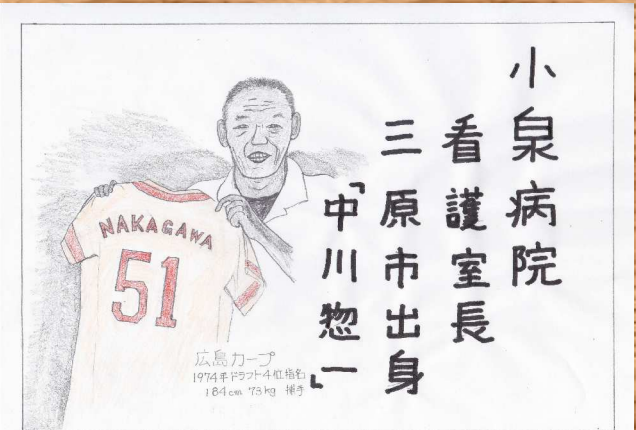 小泉病院
看護室長
三原市出身
「中川惣一」
NAKAGAWA
51
広島カープ
1974年ドラフト4位指名
184cm 73kg 捕手